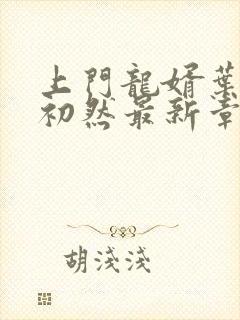 上門龍婿葉
初然最新章
胡淺淺